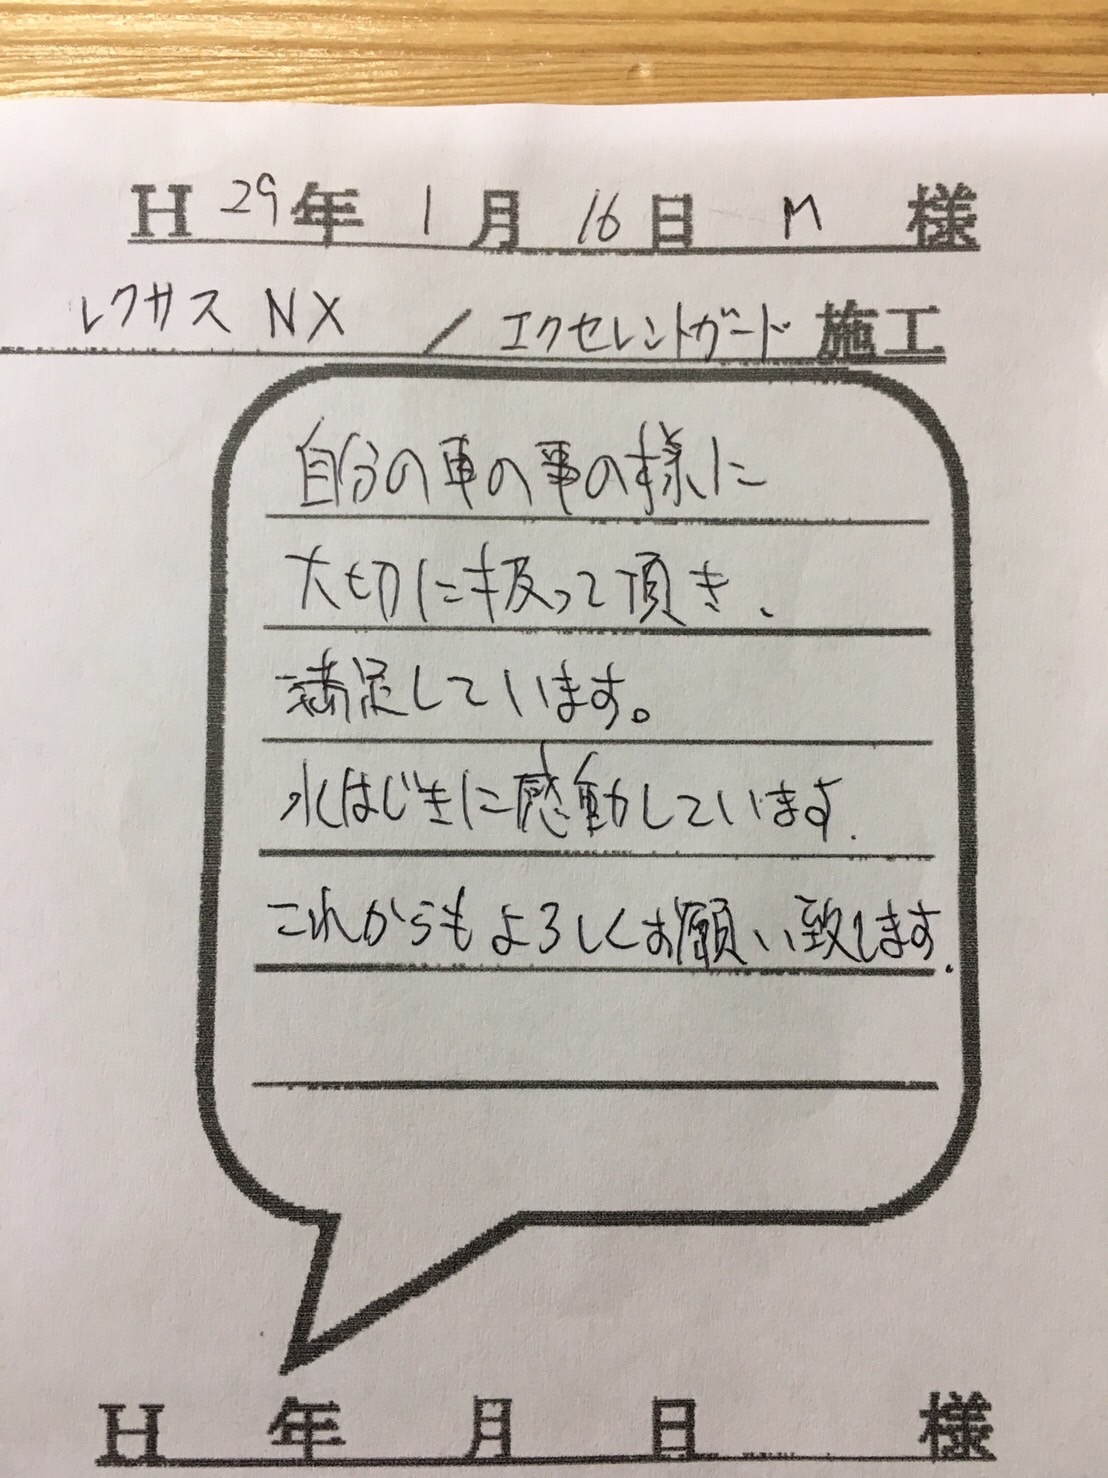 H 29年 1月 16日 M 様
レクサス NX / エクセレントガード 施工
自分の車の事の様に
大切に扱って頂き、
満足しています。
水はじきに感動しています.
これからもよろしくお願い致します.
H 年 月 日 様